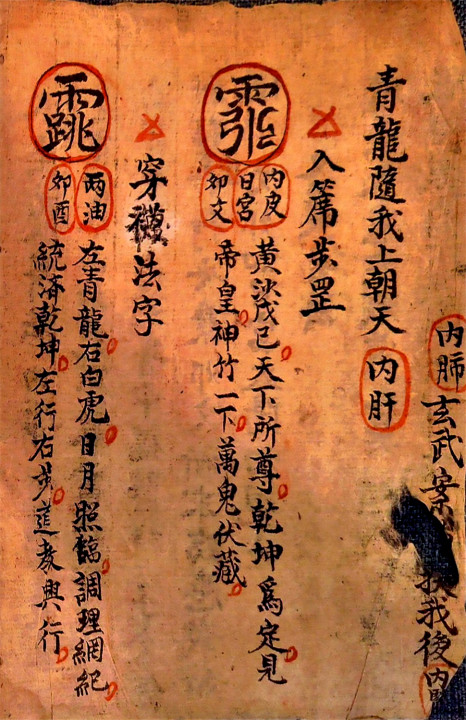 內肺
玄武案
我後
青龍隨我上朝天
內肝
入席步罡
內皮
日宮
卯文
黃沙戊己天下所尊乾坤為定見
帝皇神竹一下萬鬼伏藏
穿襪法字
兩油
卯酉
左青龍右白虎日月照臨調理綱紀
統済乾坤左行右步莚教興行